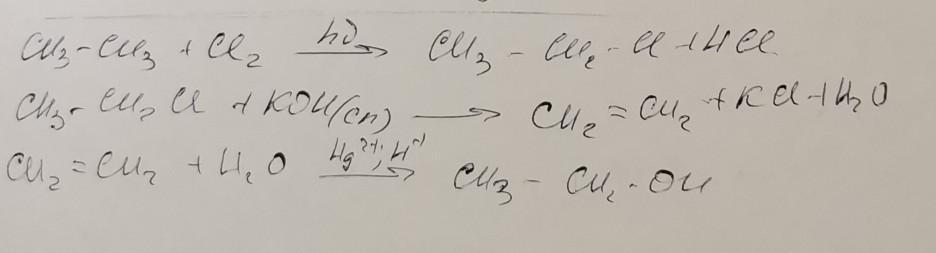 CH₃-CH₃ + Cl₂ —hν→ CH₃ - CH₂ - Cl + HCl
CH₃-CH₂Cl + KOH(сп) ⟶ CH₂=CH₂ + KCl + H₂O
CH₂=CH₂ + H₂O —Hg²⁺; H⁺→ CH₃ - CH₂ - OH